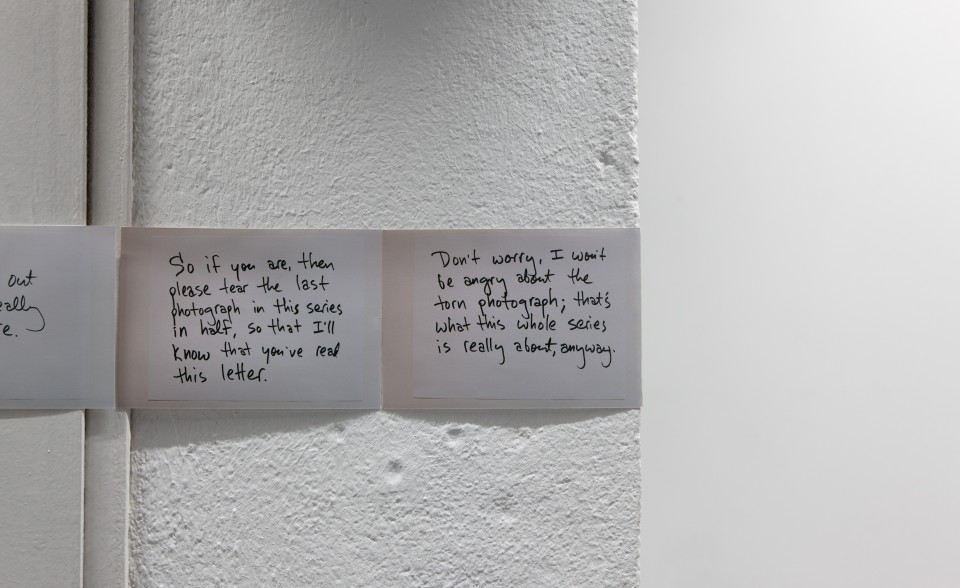 out
eally
e.
So if you are, then
please tear the last
photograph in this series
in half, so that I'll
know that you've read
this letter.
Don't worry, I won't
be angry about the
torn photograph; that's
what this whole series
is really about, anyway.